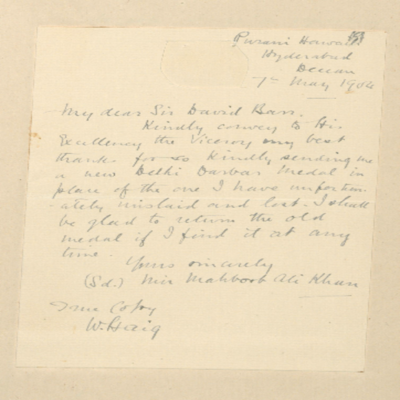 Purani Howali
Hyderabad
Deccan
7th May 1904
My dear Sir David Barr,
Kindly convey to His
Excellency the Viceroy my best
thanks for so kindly sending me
a new Delhi Darbar Medal in
place of the one I have unfortun-
-ately mislaid and lost. I shall
be glad to return the old
medal if I find it at any
time.
Yours sincerely
(Sd.) Mir Mahboob Ali Khan
True Copy
W. Haig